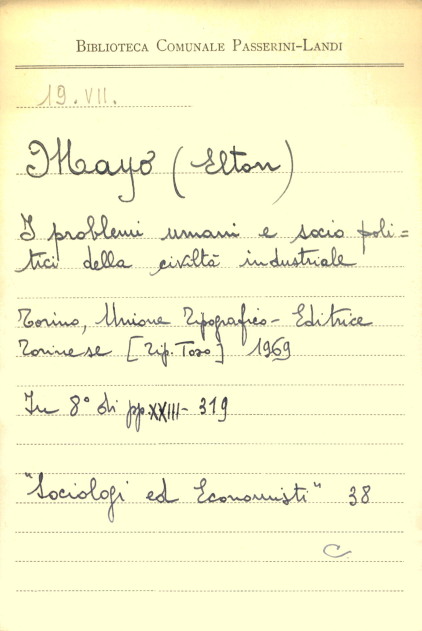 BIBLIOTECA COMUNALE PASSERINI-LANDI
19.VII.
Mayo (Elton)
I problemi umani e socio poli=
tici della civiltà industriale
Torino, Unione Tipografico-Editrice
Torinese [Tip. Toso] 1969
In 8° di pp. XXIII-319
"Sociologi ed Economisti" 38
C.